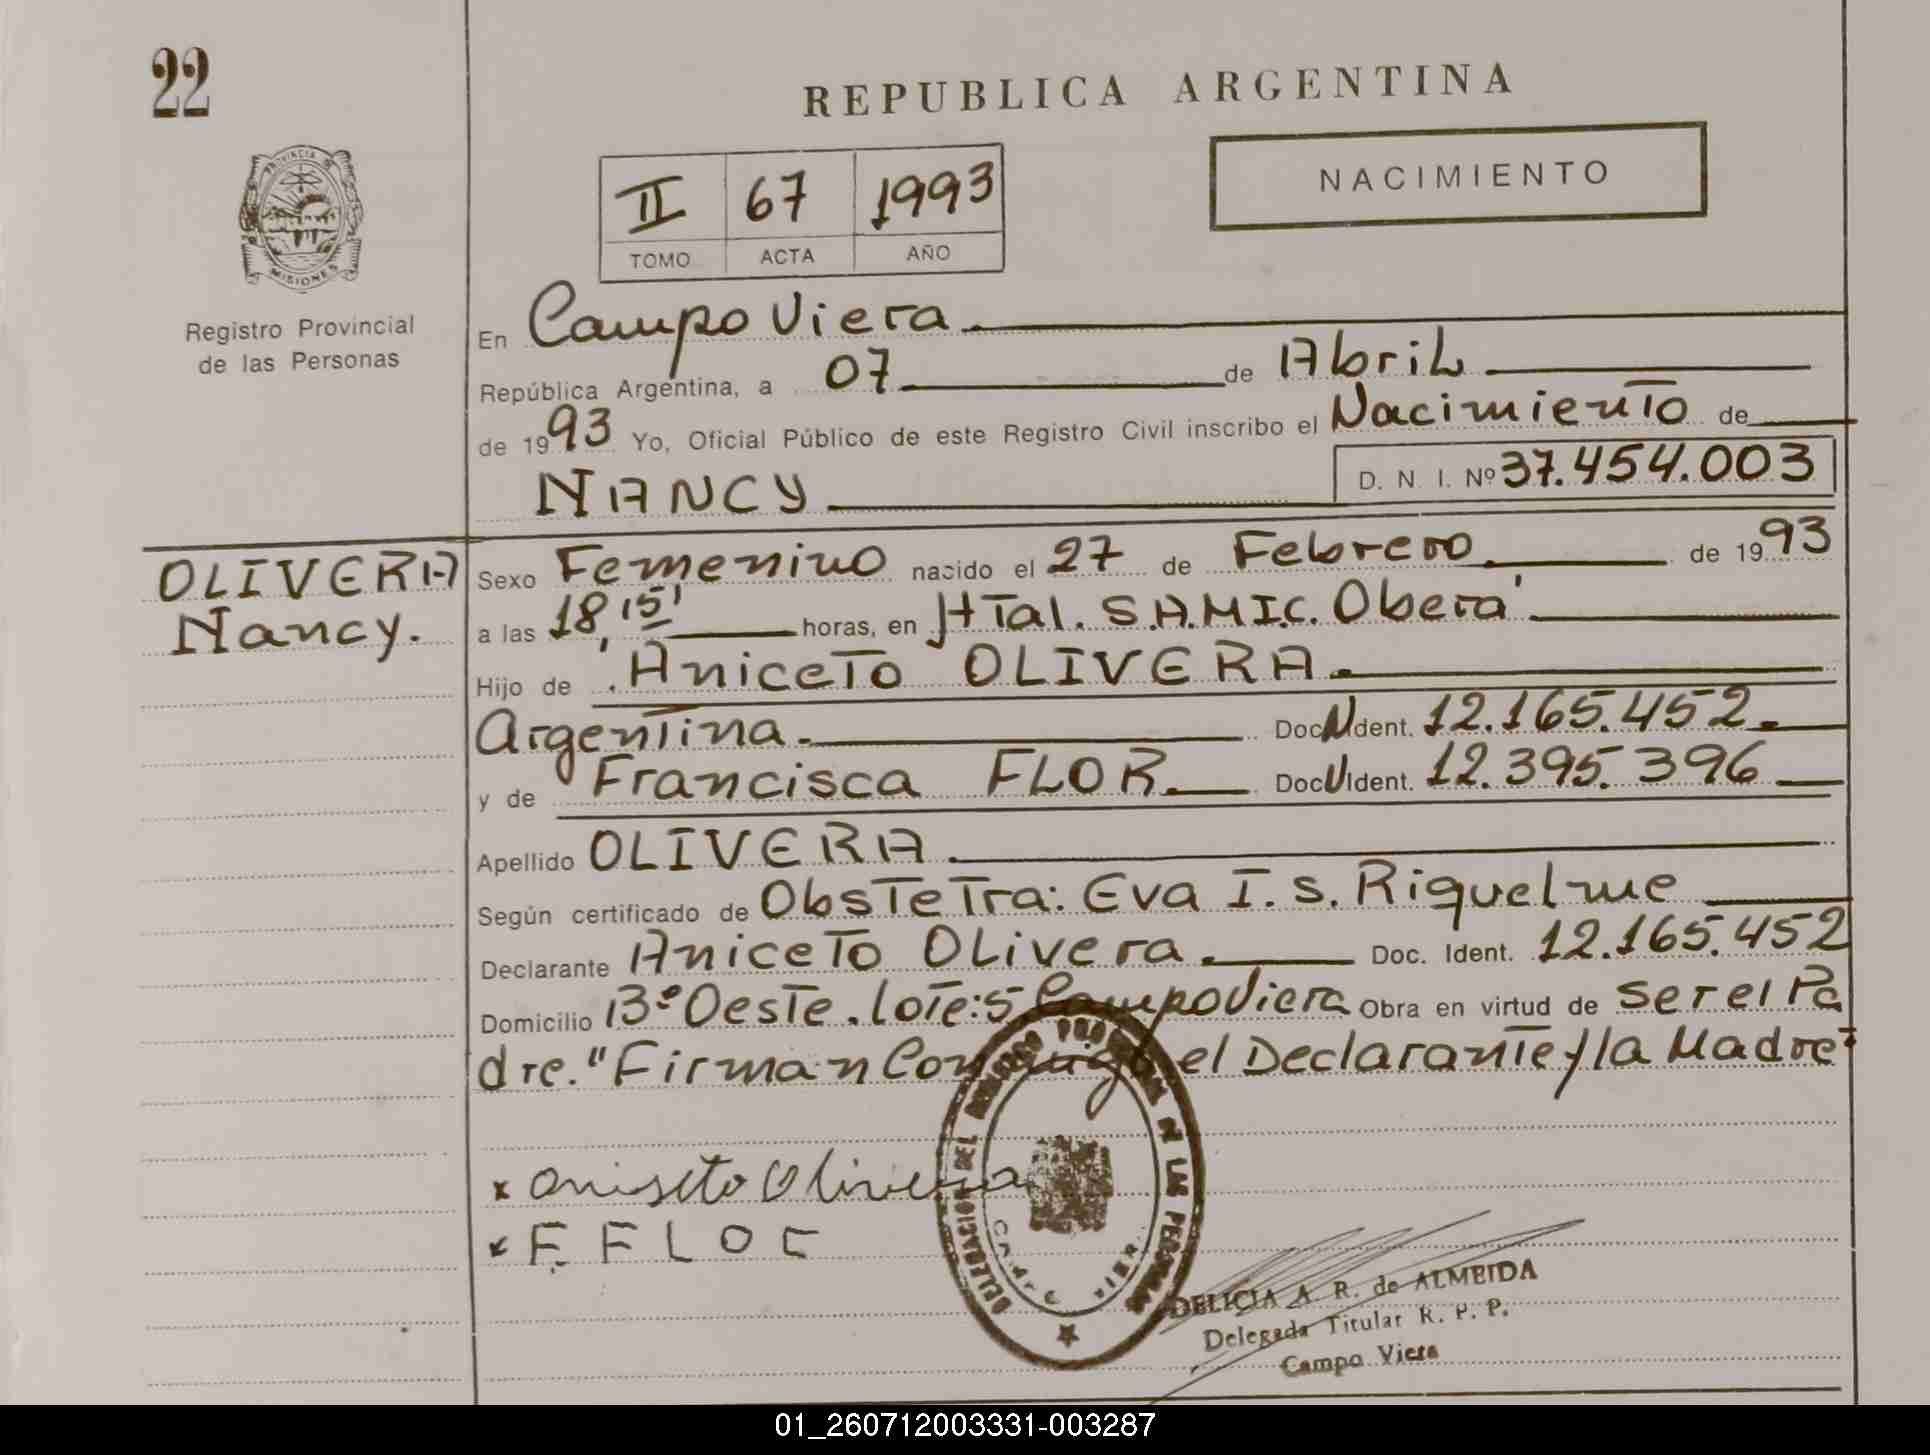 22
REPUBLICA ARGENTINA
NACIMIENTO
II 67 1993
TOMO ACTA AÑO
PROVINCIA DE
MISIONES
Registro Provincial
de las Personas
En Campo Viera.
República Argentina, a 07 de Abril
de 1993 Yo, Oficial Público de este Registro Civil inscribo el Nacimiento de
NANCY D. N. I. Nº 37.454.003
OLIVERA
Nancy.
Sexo Femenino nacido el 27 de Febrero de 1993
a las 18,15' horas, en HTal. S.A.M.I.C. Oberá
Hijo de Aniceto OLIVERA.
Argentina. Doc N Ident. 12.165.452.
y de Francisca FLOR. Doc U Ident. 12.395.396
Apellido OLIVERA.
Según certificado de Obstetra: Eva I. S. Riquelme
Declarante Aniceto Olivera. Doc. Ident. 12.165.452
Domicilio 13º Oeste. lote:5 Campo Viera Obra en virtud de ser el Pa
dre. "Firman Conmigo el Declarante y la Madre"
x aniseto Olivera
x F. FLOr
DELEGACION DEL REGISTRO PROVINCIAL DE LAS PERSONAS
DELICIA A. R. de ALMEIDA
Delegada Titular R. P. P.
Campo Viera
01_260712003331-003287